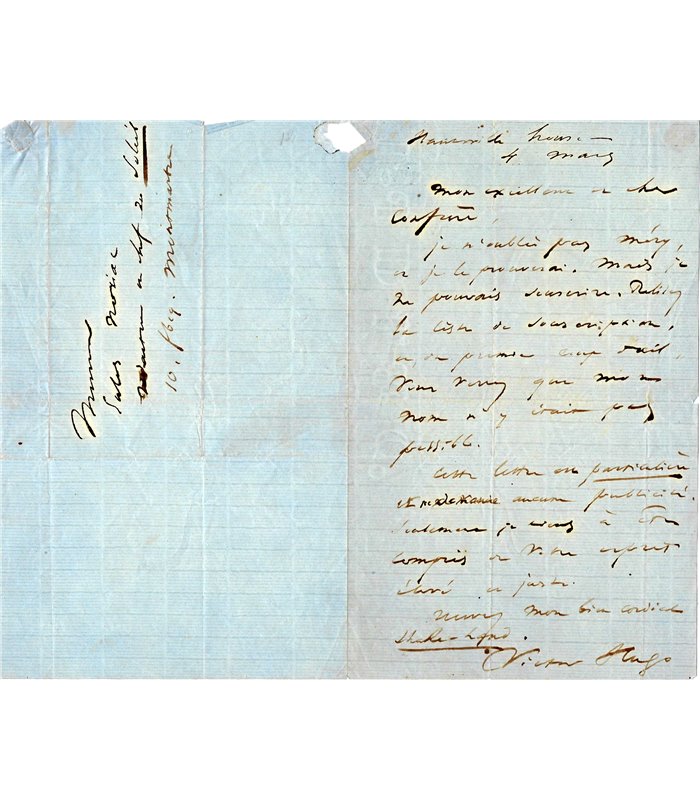 Monsieur
Jules Noriac
rédacteur en chef du Soleil
10. fbg. Montmartre
Hauteville house
4 mars
Mon excellent et cher
confrère,
je n'oublie pas Méry,
et je le prouverai. Mais je
ne pouvais souscrire. Relisez
la liste de souscription,
et, du premier coup d'œil,
vous verrez que mon
nom n'y était pas
possible.
Cette lettre est particulière
et ne aucune publicité
seulement je tiens à être
compris de votre esprit
élevé et juste.
Recevez mon bien cordial
shake-hand.
Victor Hugo